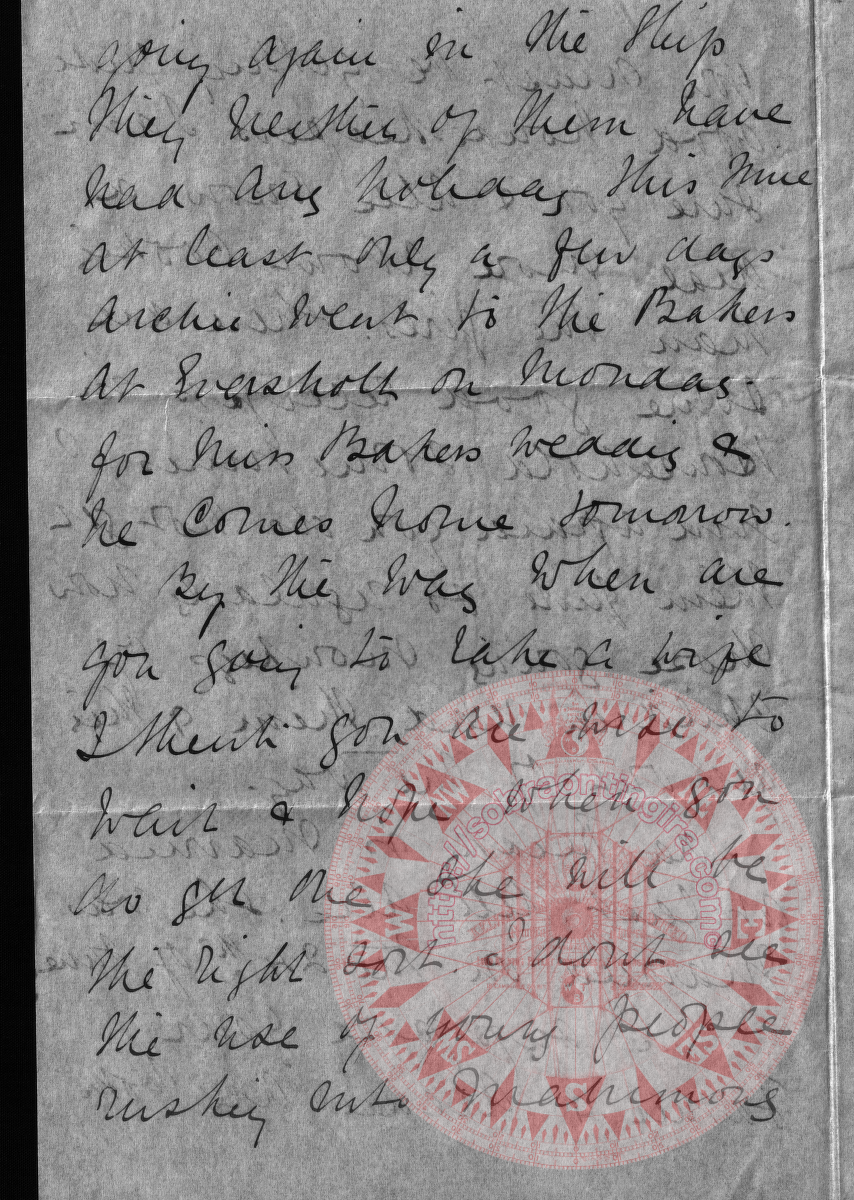 going again in the Ship
They neither of them have
had any holiday this time
at least only a few days
Archie went to the Bakers
at Evershott on Monday.
for Miss Bakers wedding &
he comes home tomorrow.
By the Way When are
you going to take a wife
I think you are wise to
wait & hope when you
do get one she will be
the right sort. I dont see
the use of young people
rushing into Matrimony
http://sobrepontingire.com
W
E
S
SW
SE